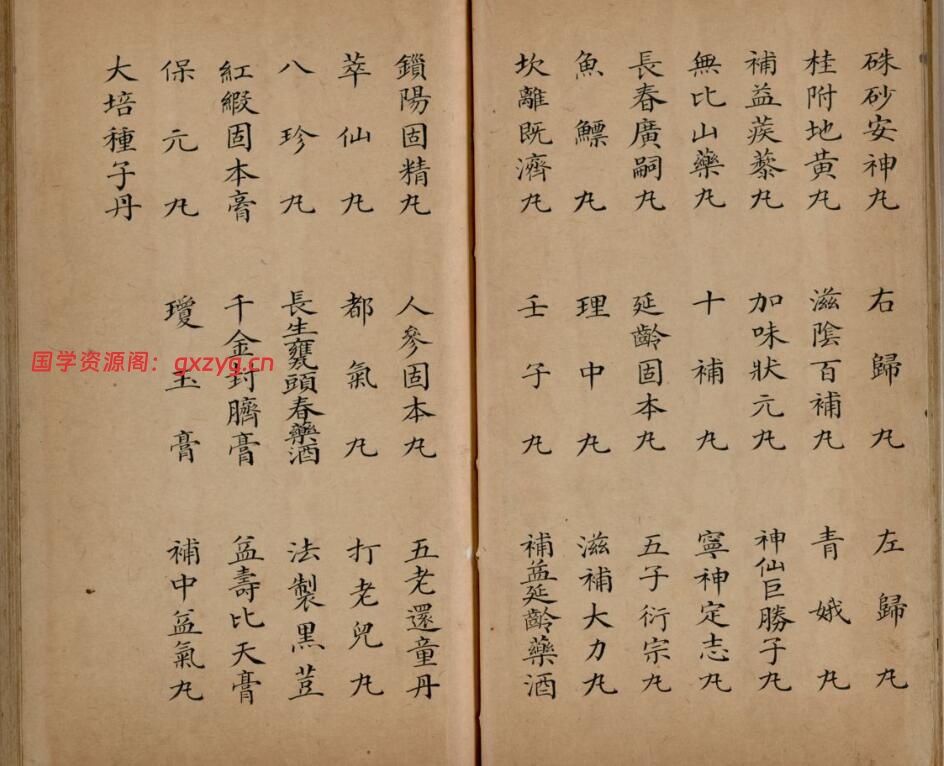 硃砂安神丸 右歸丸 左歸丸
桂附地黃丸 滋陰百補丸 青娥丸
補益蒺藜丸 加味狀元丸 神仙巨勝子丸
無比山藥丸 十補丸 寧神定志丸
長春廣嗣丸 延齡固本丸 五子衍宗丸
魚鰾丸 理中丸 滋補大力丸
坎離既濟丸 壬子丸 補益延齡藥酒
鎖陽固精丸 人參固本丸 五老還童丹
萃仙丸 都氣丸 打老兒丸
八珍丸 長生甕頭春藥酒 法製黑荳
紅緞固本膏 千金封臍膏 益壽比天膏
保元丸 瓊玉膏 補中益氣丸
大培種子丹
国学资源阁：gxzyg.cn